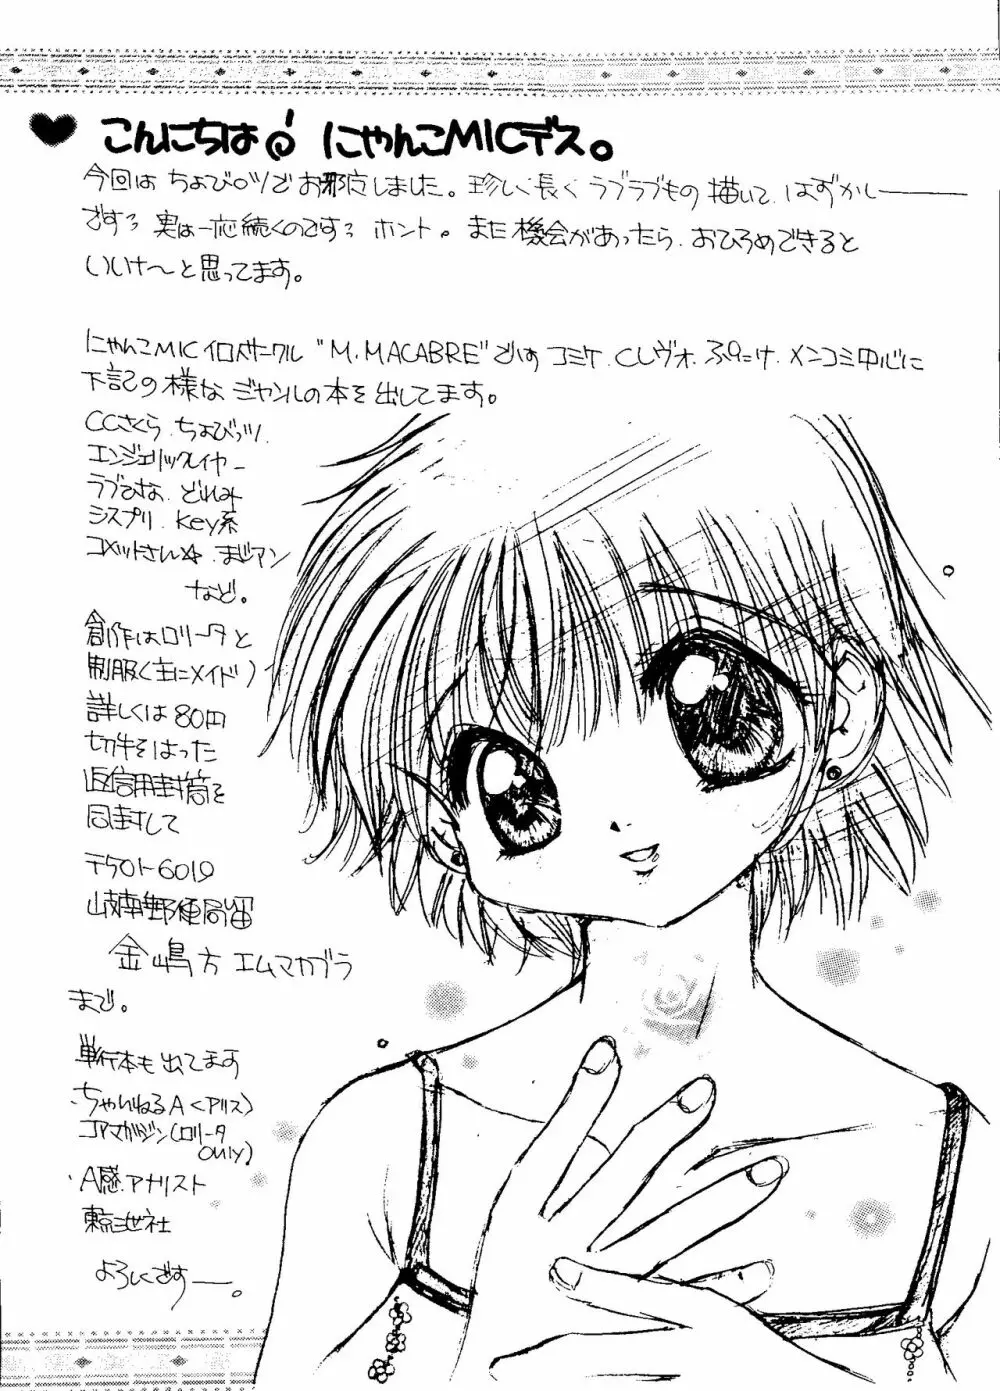 こんにちは♪ にゃんこMICデス。
今回は ちょびッツで お邪魔しました。珍しく長く ラブラブもの 描いて、はずかしー
ですっ 実は一応続くのですっ ホント。また 機会があったら、おひろめできると
いいナ〜と思ってます。
にゃんこMIC サークル "M.MACABRE" では コミケ、Cレヴォ、ぷにケ、メンコミ中心に
下記の様な ジャンルの本を 出してます。
CCさくら、ちょびっツ、
エンジェリックレイヤー
ラブひな、どれみ
シスプリ、Key系
コメットさん☆、まジアン
など。
創作はロリータと
制服(主にメイド)
詳しくは 80円
切手をはった
返信用封筒を
同封して
〒501-6019
岐南郵便局留
金嶋方 エムマカブラ
まで。
単行本も 出てます
・ちゃいねるA<アリス>
コアマガジン(ロリータ
only)
・A感.アナリスト
東京三世社
よろしくですー。